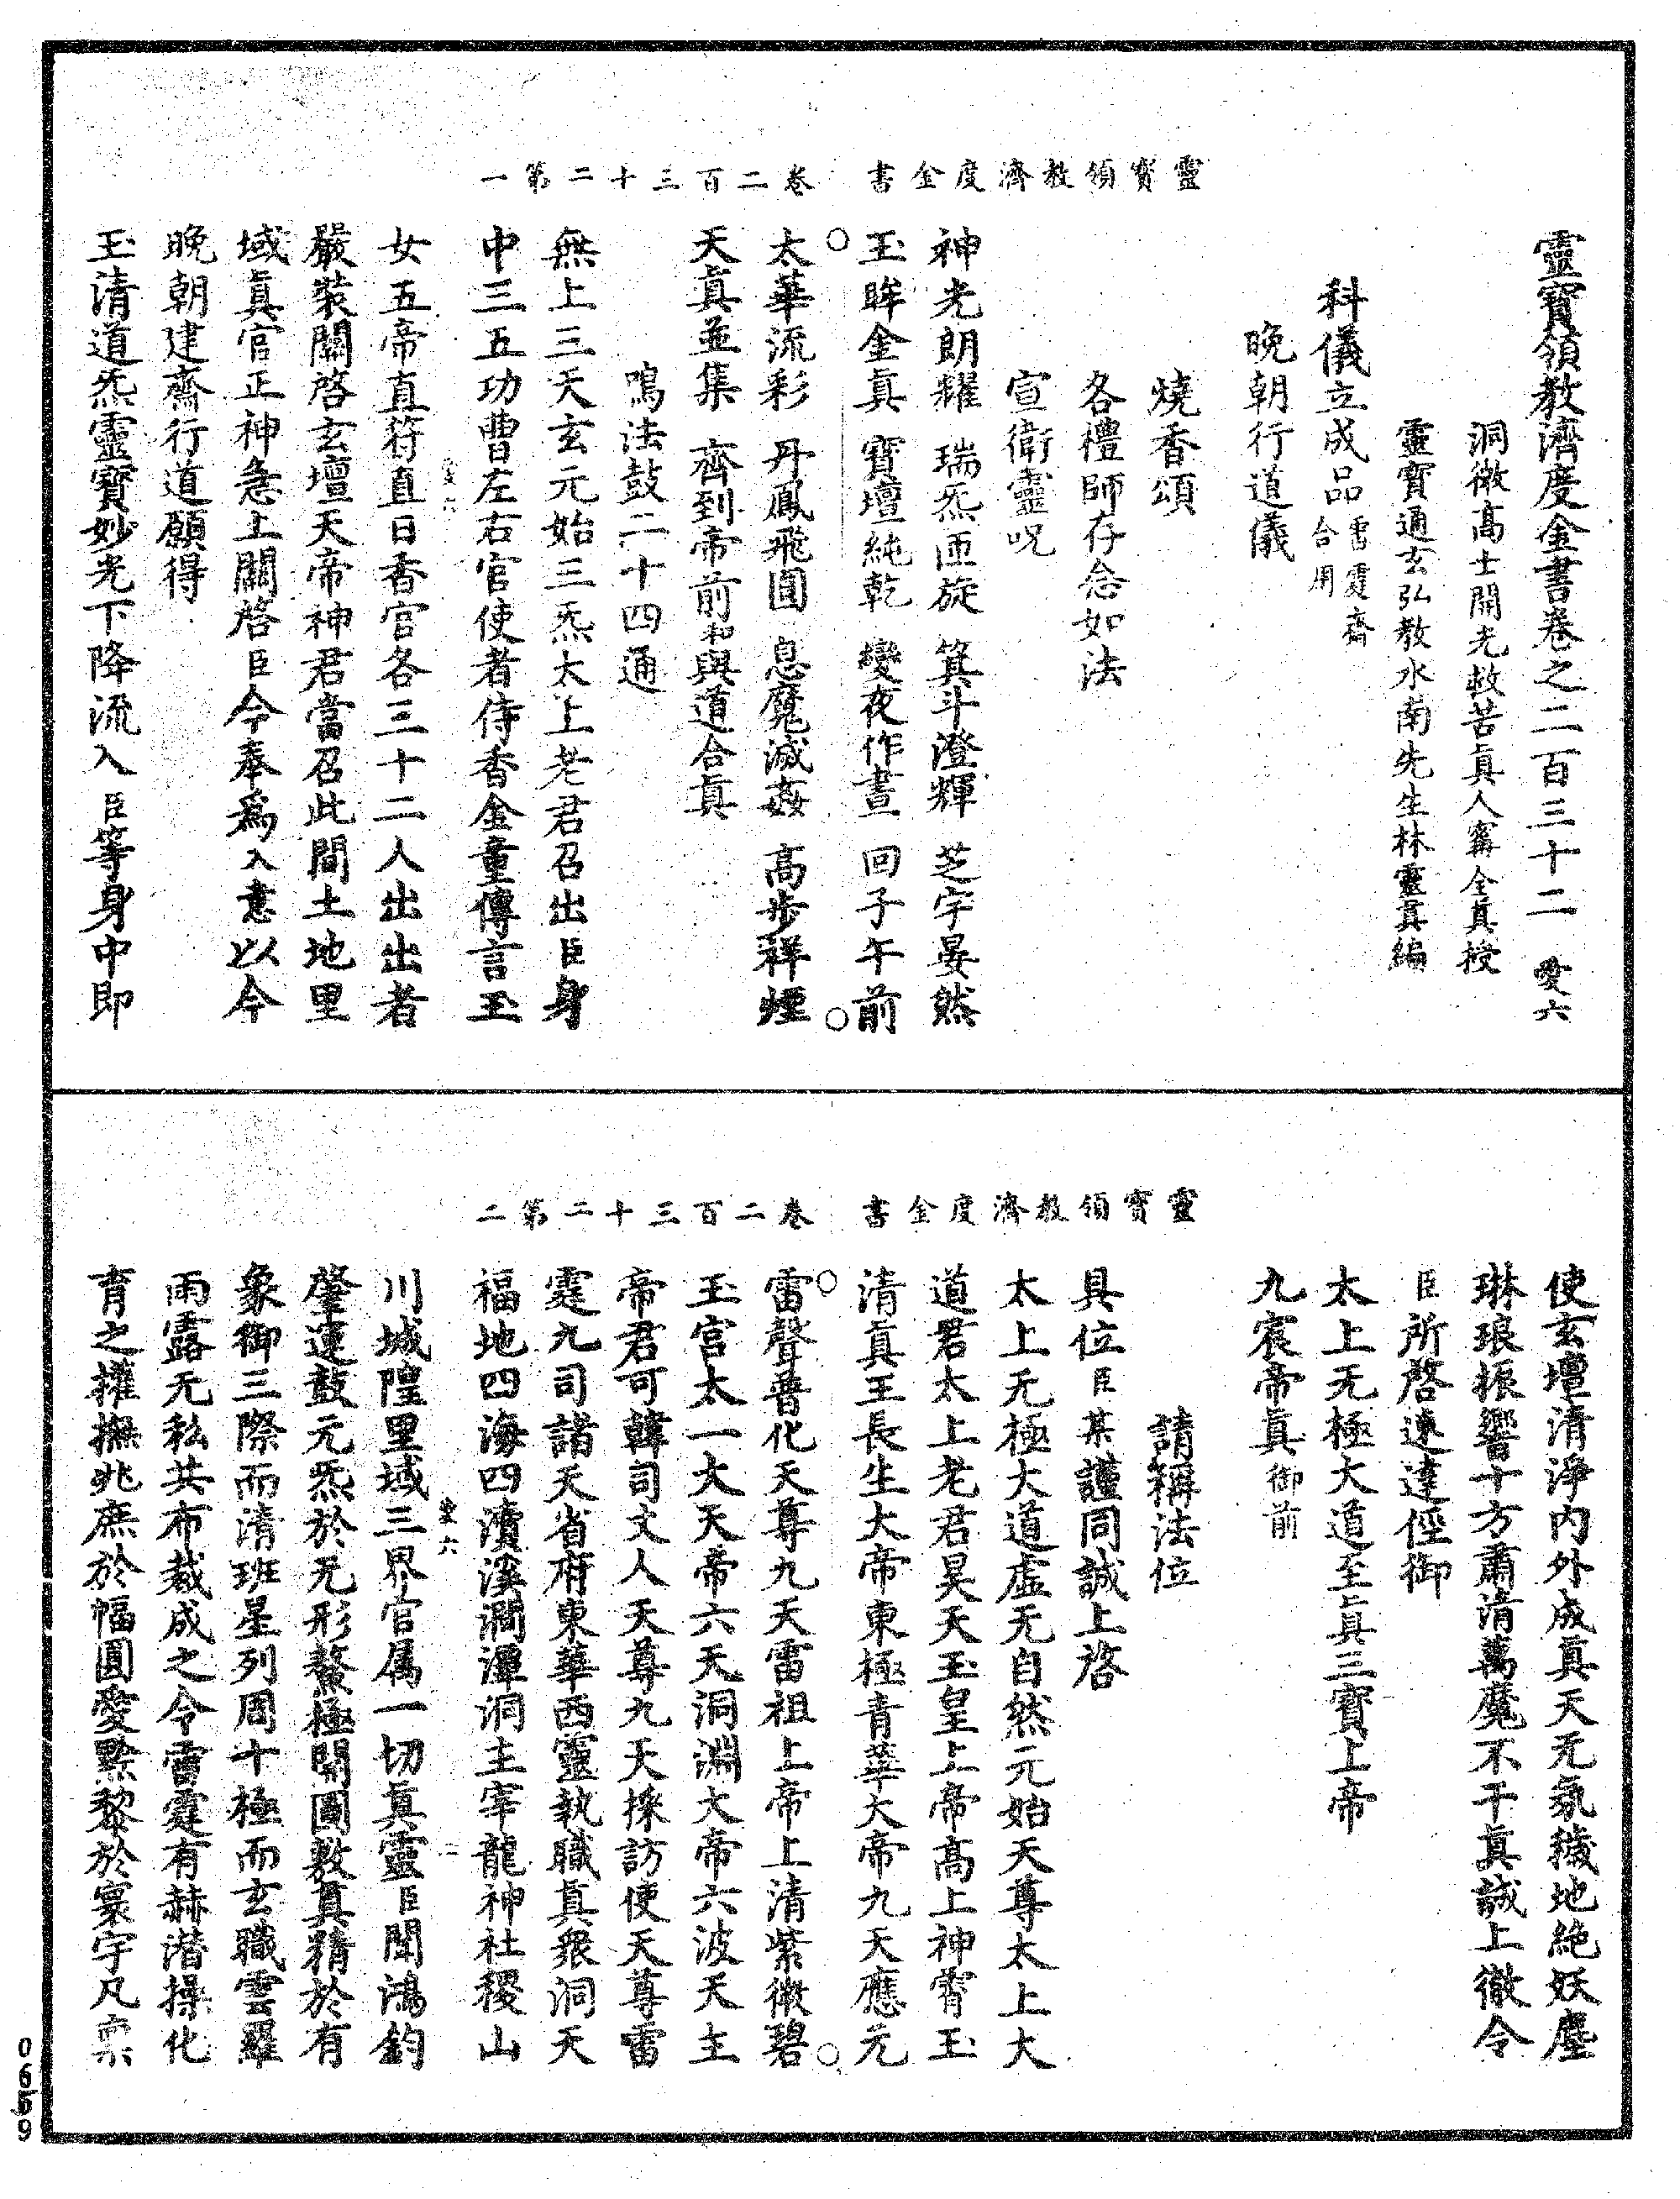 靈寶領教濟度金書　卷二百三十二第一
靈寶領教濟度金書卷之二百三十二　愛六
洞微高士開光救苦真人寗全真授
靈寶通玄弘教水南先生林靈真編
科儀立成品雷霆齋合用
晚朝行道儀
燒香頌
各禮師存念如法
宣衛靈呪
神光朗耀　瑞炁匝旋　箕斗澄輝　芝宇晏然
玉眸金真　寶壇純乾　變夜作晝　回子午前
太華流彩　丹鳳飛圓　息魔滅姦　高步祥煙
天真並集　齊到帝前和與道合真
鳴法鼓二十四通
無上三天玄元始三炁太上老君召出臣身
中三五功曹左右官使者侍香金童傳言玉
女五帝直符直日香官各三十二人出出者
嚴裝關啓玄壇天帝神君當召此間土地里
域真官正神急上關啓臣今奉爲入意以今
晚朝建齋行道願得
玉清道炁靈寶妙光下降流入臣等身中即
靈寶領教濟度金書　卷二百三十二第二
使玄壇清淨內外成真天无氛穢地絶妖塵
琳琅振響十方肅清萬魔不干真誠上徹令
臣所啓速達徑御
太上无極大道至真三寶上帝
九宸帝真御前
請稱法位
具位臣某謹同誠上啓
太上无極大道虛无自然元始天尊太上大
道君太上老君昊天玉皇上帝高上神霄玉
清真王長生大帝東極青華大帝九天應元
雷聲普化天尊九天雷祖上帝上清紫微碧
玉宮太一大天帝六天洞淵大帝六波天主
帝君可韓司丈人天尊九天採訪使天尊雷
霆九司諸天省府東華西靈執職真衆洞天
福地四海四瀆溪澗潭洞主宰龍神社稷山
川城隍里域三界官属一切真靈臣聞鴻鈞
肇運鼓元炁於无形鰲極開圖敷真精於有
象御三際而清班星列周十極而玄職雲羅
雨露无私共布裁成之令雷霆有赫潛操化
育之權撫兆庶於幅圓愛黔黎於寰宇凡禀
愛六　二
0659